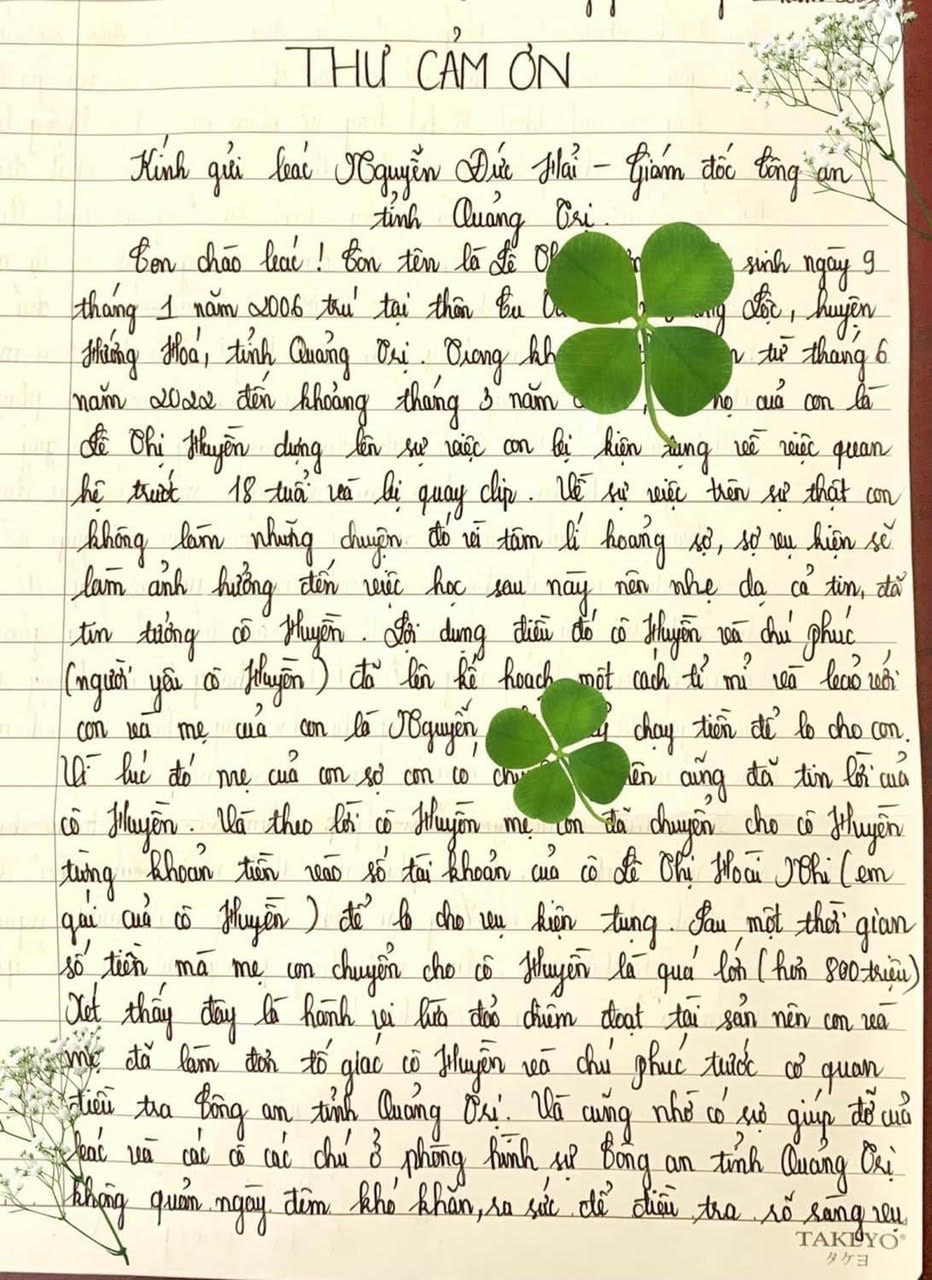 THƯ CẢM ƠN
Kính gửi bác Nguyễn Đức Hải - Giám đốc Công an
tỉnh Quảng Trị.
Con chào bác! Con tên là Lê sinh ngày 9
tháng 1 năm 2006 trú tại thôn Lộc, huyện
Hướng Hoá, tỉnh Quảng Trị. Trong từ tháng 6
năm 2022 đến khoảng tháng 3 năm của con là
Lê Thị Huyền dựng lên sự việc con bị kiện tụng về việc quan
hệ trước 18 tuổi và bị quay clip. Về sự việc trên sự thật con
không làm những chuyện đó vì tâm lí hoảng sợ, sợ vụ kiện sẽ
làm ảnh hưởng đến việc học sau này nên nhẹ dạ cả tin, đã
tin tưởng cô Huyền. Lợi dụng điều đó cô Huyền và chú phúc
(người yêu cô Huyền) đã lên kế hoạch một cách tỉ mỉ và bảo với
con và mẹ của con là Nguyễn chạy tiền để lo cho con.
Vì lúc đó mẹ của con sợ con có nên cũng đã tin lời của
cô Huyền. Và theo lời cô Huyền mẹ con đã chuyển cho cô Huyền
từng khoản tiền vào số tài khoản của cô Lê Thị Hoài Nhi (em
gái của cô Huyền) để lo cho vụ kiện tụng. Sau một thời gian
số tiền mà mẹ con chuyển cho cô Huyền là quá lớn (hơn 800 triệu)
Xét thấy đây là hành vi lừa đảo chiếm đoạt tài sản nên con và
mẹ đã làm đơn tố giác cô Huyền và chú phúc trước cơ quan
điều tra Công an tỉnh Quảng Trị. Và cũng nhờ có sự giúp đỡ của
bác và các cô các chú ở phòng hình sự Công an tỉnh Quảng Trị
không quản ngày đêm khó khăn, ra sức để điều tra sổ sàng vụ
TAKEYO
タケヨ